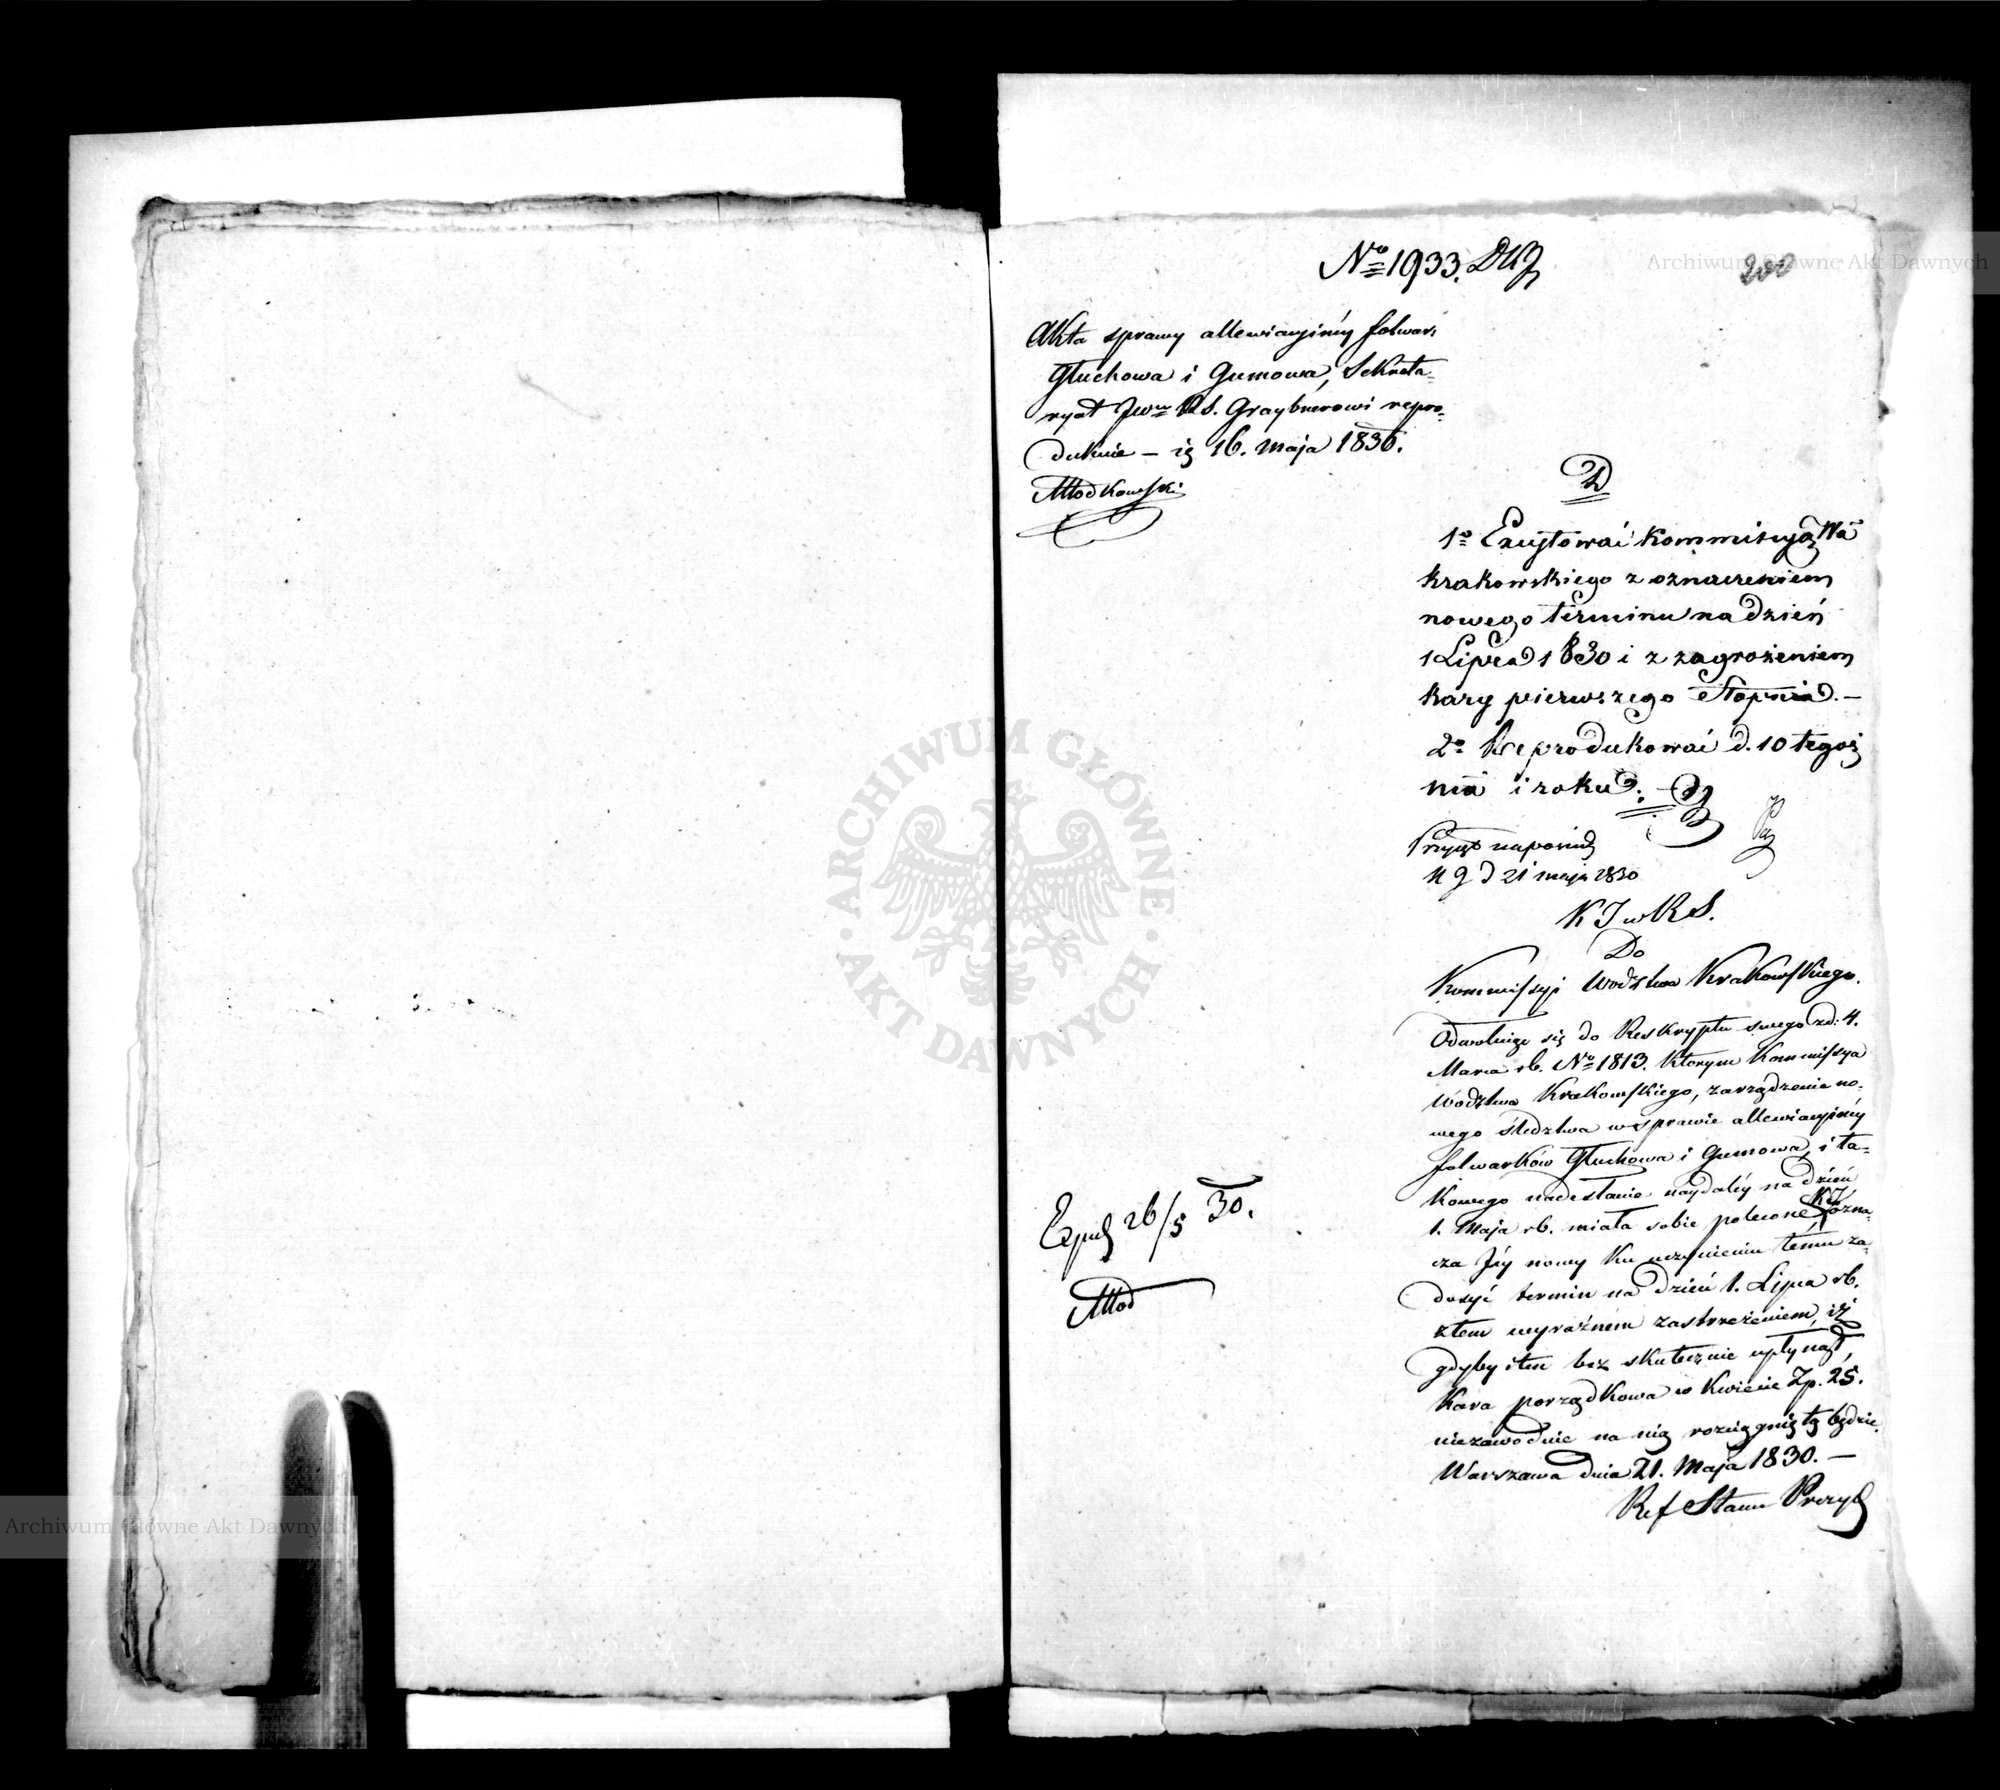 No 1933. DKJ
200
Akta sprawy allewiacyjnéy folwar:
Głuchowa i Gumowa, Sekreta=
ryat Jwu RS. Graybnerowi repro=
dukuie – iż 16. Maja 1830.
Młodkowski
D
1o Excytować Kommissyą Wa
Krakowskiego z oznaczeniem
nowego terminu na dzień
1 Lipca 1830 i z zagrożeniem
kary pierwszego stopnia. –
2o Reprodukować d. 10 tegoż
ma i roku.
Przyięto
d 21 maja 1830
K J w R S.
Do
Kommissyi Wodztwa Krakowskiego.
Odwołuiąc się do Reskryptu swego z d: 4.
Marca rb. No 1813. którym Kommissya
Wodztwa Krakowskiego, zarządzenie no=
wego śledztwa w sprawie allewiacyjnéy
folwarków Głuchowa i Gumowa, i ta=
kowego nadesłanie naydaléy na dzień
1. Maja rb. miała sobie polecone, KJ ozna=
cza Jéy nowy ku uczynieniu temu za=
dosyć termin na dzień 1. Lipca rb.
z tem wyraźném zastrzeżeniem, iż
gdyby i ten bez skutecznie upłynął,
kara porządkowa w kwocie Zp. 25.
niezawodnie na nią rozciągniętą będzie.
Warszawa dnia 21. Maja 1830. –
Ref Stanu
Exped 26/5 30.
Młod
Archiwum Główne Akt Dawnych
ARCHIWUM GŁÓWNE
AKT DAWNYCH
Archiwum Główne Akt Dawnych